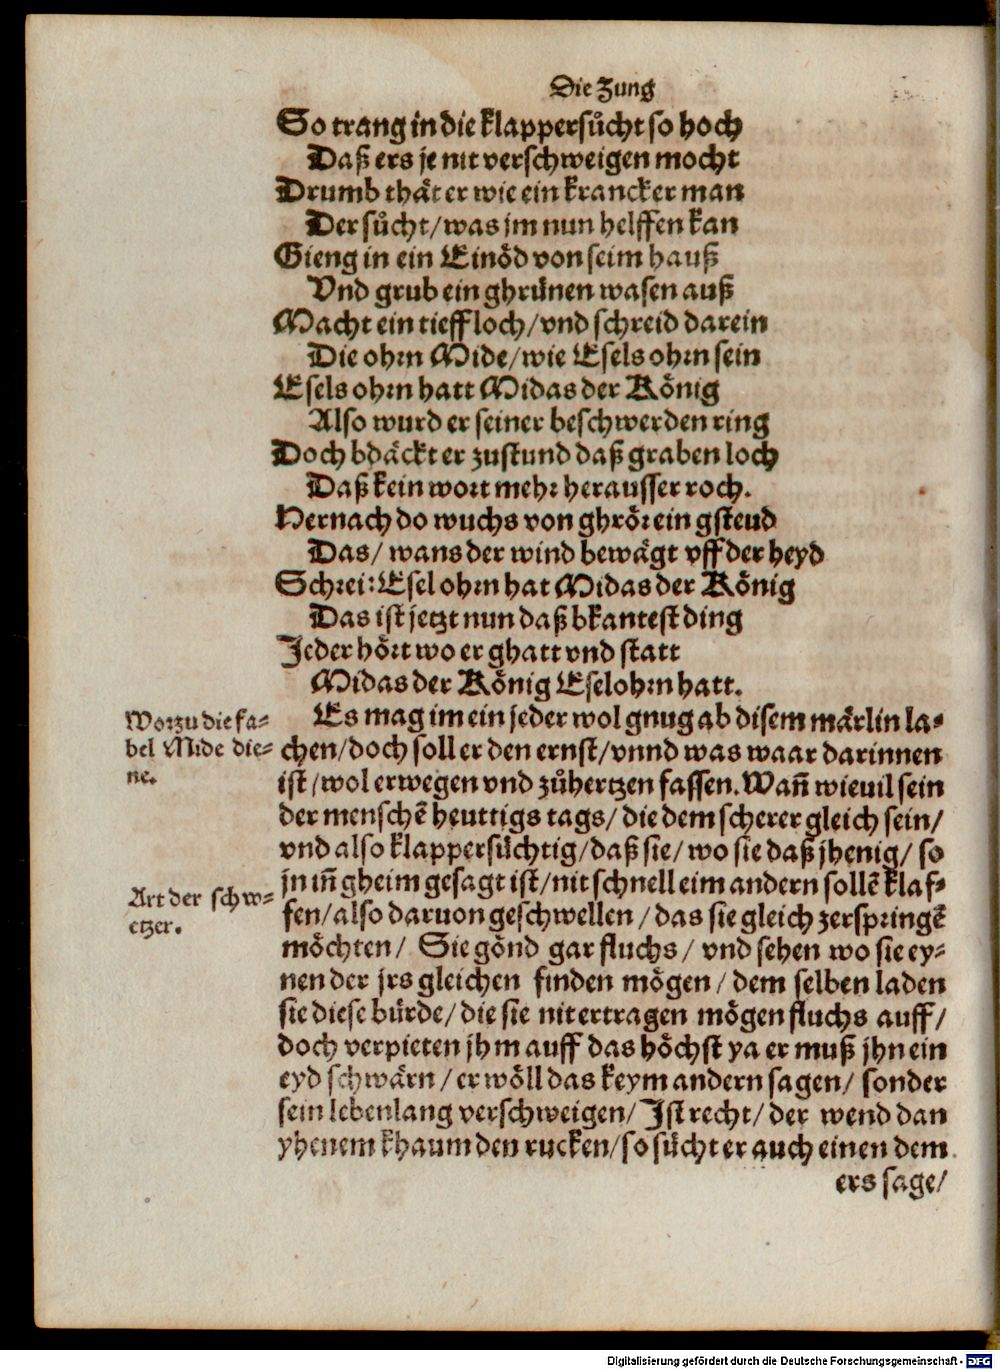 Die Zung
So trang in die klappersuͤcht so hoch
Daß ers je nit verschweigen mocht
Drumb thaͤt er wie ein krancker man
Der suͦcht/ was jm nun helffen kan
Gieng in ein Einoͤd von seim hauß
Vnd grub ein ghruͤnen wasen auß
Macht ein tieff loch/ vnd schreid darein
Die ohrn Mide/ wie Esels ohrn sein
Esels ohrn hatt Midas der Koͤnig
Also wurd er seiner beschwerden ring
Doch bdaͤckt er zustund daß graben loch
Daß kein wort mehr herausser roch.
Hernach do wuchs von ghroͤr ein gsteud
Das/ wans der wind bewaͤgt vff der heyd
Schrei: Esel ohrn hat Midas der Koͤnig
Das ist jetzt nun daß bkantest ding
Jeder hoͤrt wo er ghatt vnd statt
Midas der Koͤnig Eselohrn hatt.
Worzu die fa-
bel Mide die-
ne.
Es mag im ein jeder wol gnug ab disem maͤrlin la-
chen/ doch soll er den ernst/ vnnd was waar darinnen
ist/ wol erwegen vnd zuͦ hertzen fassen. Wañ wieuil sein
der menschẽ heuttigs tags/ die dem scherer gleich sein/
vnd also klappersuͤchtig/ daß sie/ wo sie daß jhenig/ so
Art der schw-
etzer.
jn iñ gheim gesagt ist/ nit schnell eim andern sollẽ klaf-
fen/ also daruon geschwellen/ das sie gleich zerspringẽ
moͤchten/ Sie goͤnd gar fluchs/ vnd sehen wo sie ey-
nen der jrs gleichen finden moͤgen/ dem selben laden
sie diese buͤrde/ die sie nit ertragen moͤgen fluchs auff/
doch verpieten jhm auff das hoͤchst ya er muß jhn ein
eyd schwaͤrn/ er woͤll das keym andern sagen/ sonder
sein lebenlang verschweigen/ Jst recht/ der wend dan
yhenem khaum den rucken/ so suͤcht er auch einen dem
ers sage/
Digitalisierung gefördert durch die Deutsche Forschungsgemeinschaft - DFG